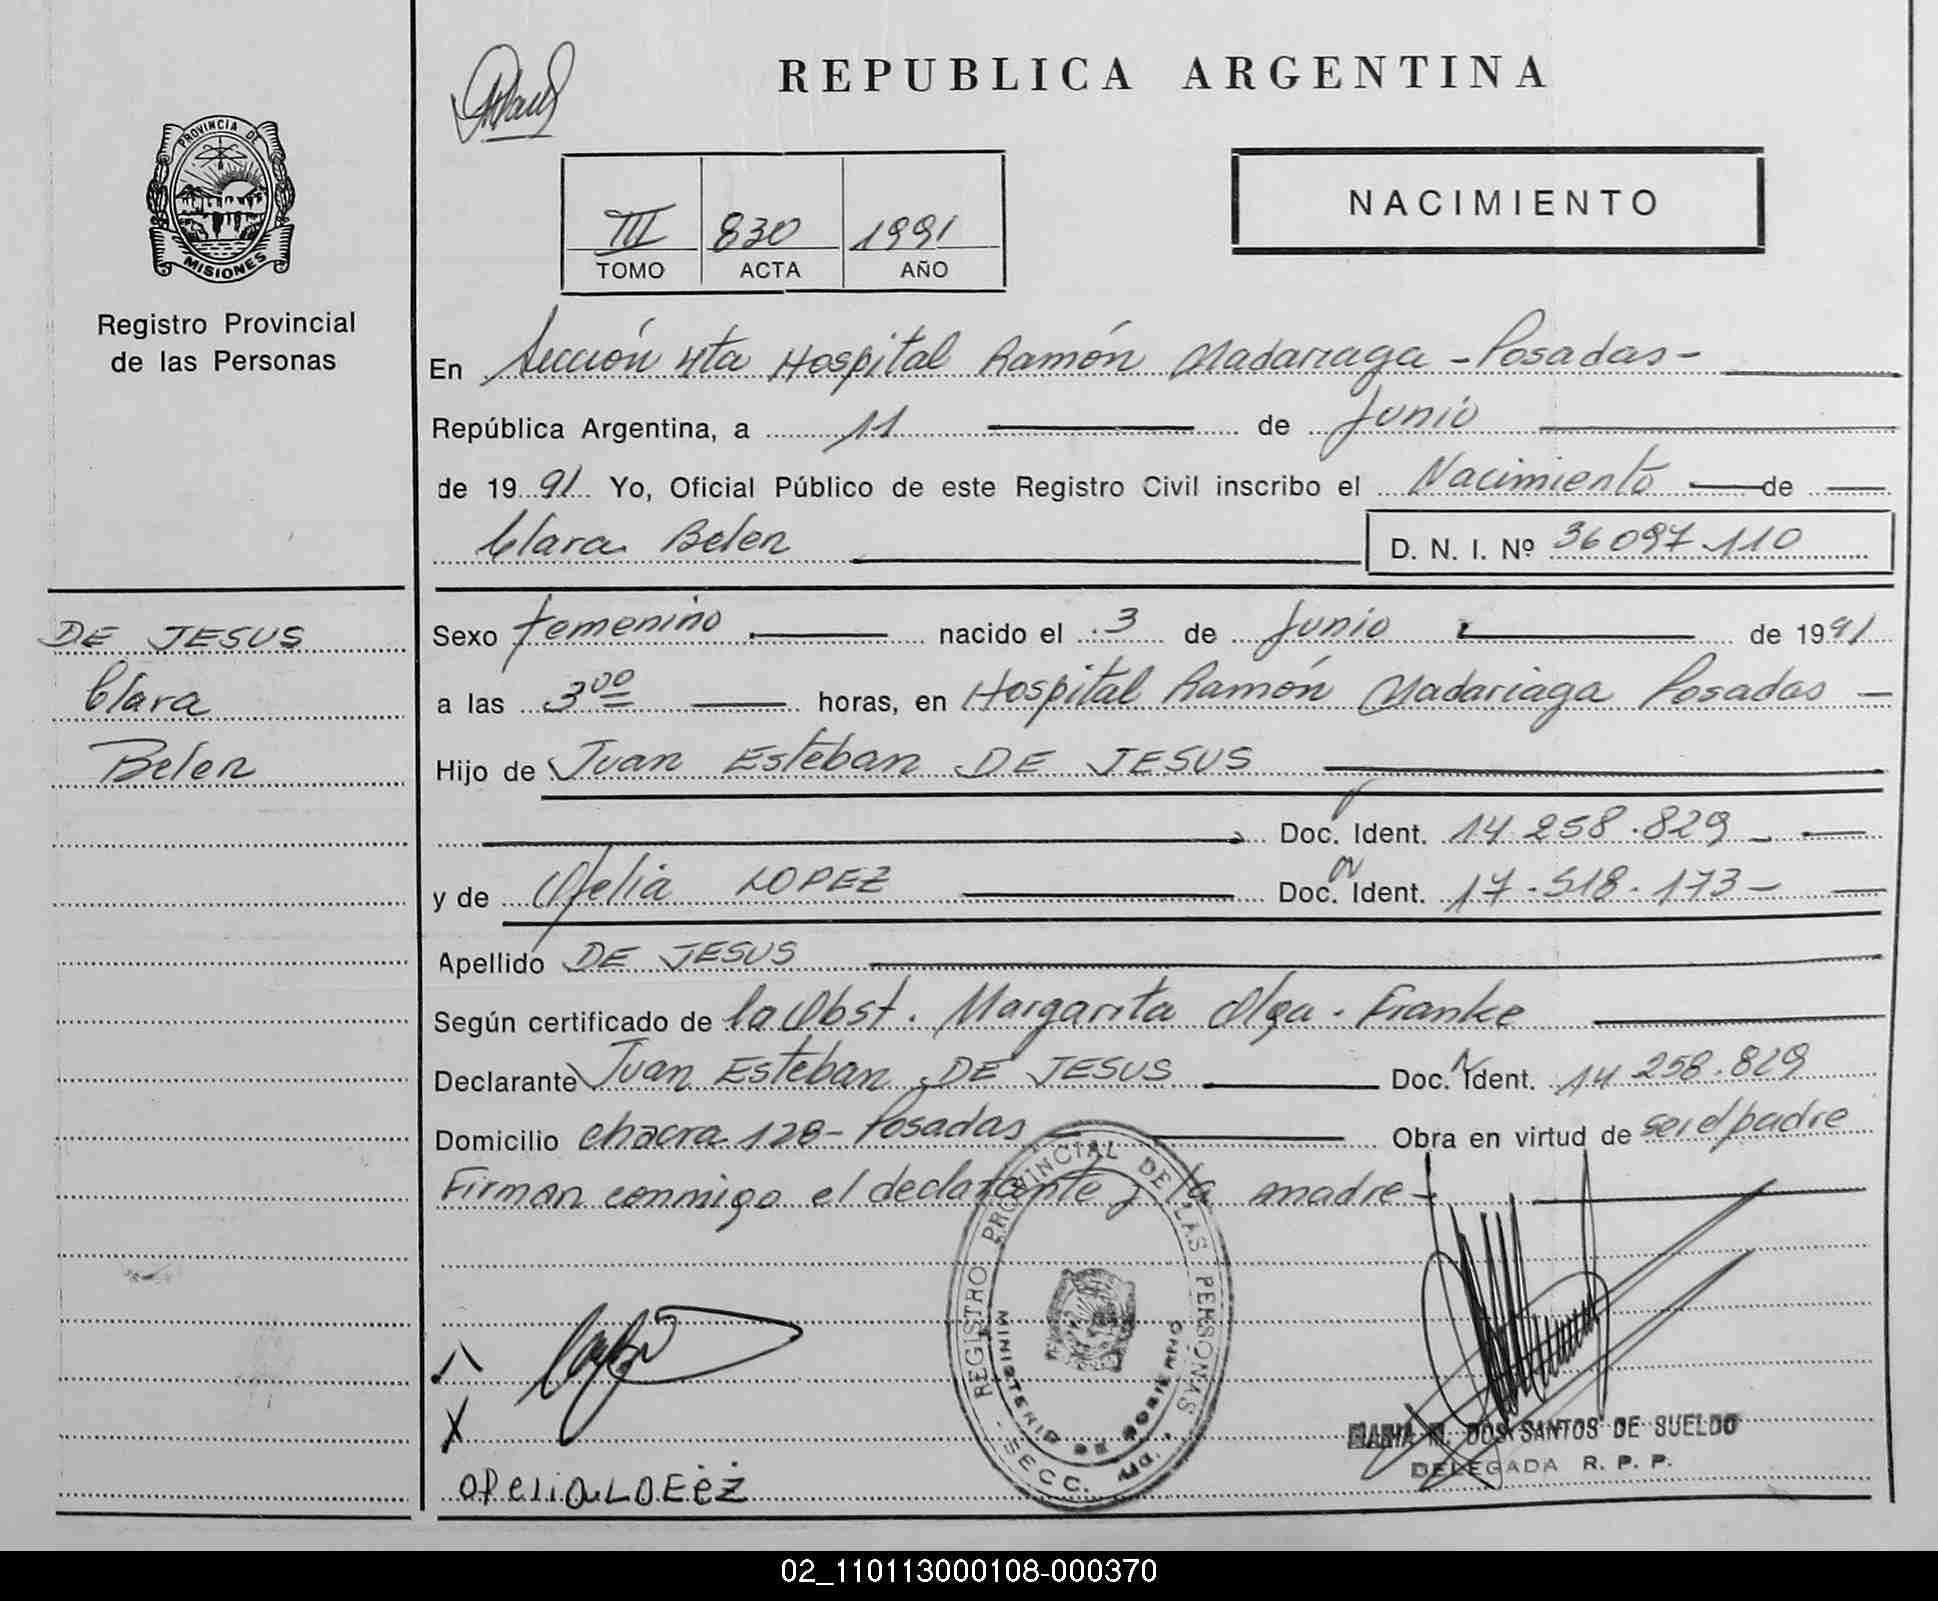 REPUBLICA ARGENTINA
PROVINCIA DE
MISIONES
Registro Provincial
de las Personas
III 830 1991
TOMO ACTA AÑO
NACIMIENTO
En Sección 4ta Hospital Ramón Madariaga - Posadas -
República Argentina, a 11 de Junio
de 1991 Yo, Oficial Público de este Registro Civil inscribo el Nacimiento de
Clara Belen D. N. I. Nº 36097.110
DE JESUS
Clara
Belen
Sexo femenino nacido el 3 de Junio de 1991
a las 3 00 horas, en Hospital Ramón Madariaga Posadas -
Hijo de Juan Esteban DE JESUS
Doc. Ident. 14.258.829
y de Ofelia LOPEZ Doc. Ident. 17.518.173 -
Apellido DE JESUS
Según certificado de la Obst. Margarita Olga. Franke
Declarante Juan Esteban DE JESUS Doc. Ident. 14.258.829
Domicilio chacra 128 - Posadas Obra en virtud de ser el padre
Firman conmigo el declarante y la madre -
REGISTRO PROVINCIAL DE LAS PERSONAS
MINISTERIO DE GOBIERNO
SECC. 4ta.
X
OFELIA LOPEZ
MARIA M. DOS SANTOS DE SUELDO
DELEGADA R. P. P.
02_110113000108-000370